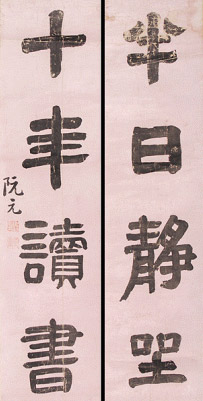 半日靜坐
十年讀書
阮元